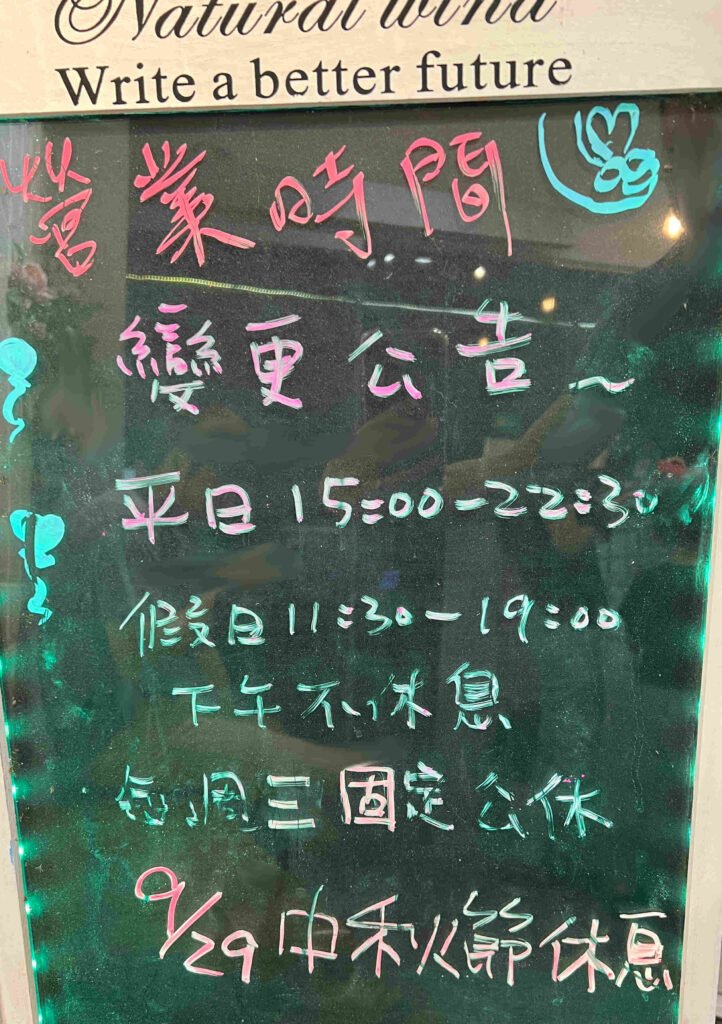 Natural wind
Write a better future
營業時間
變更公告~
平日 15:00-22:30
假日 11:30-19:00
下午不休息
每週三固定公休
9/29中秋節休息